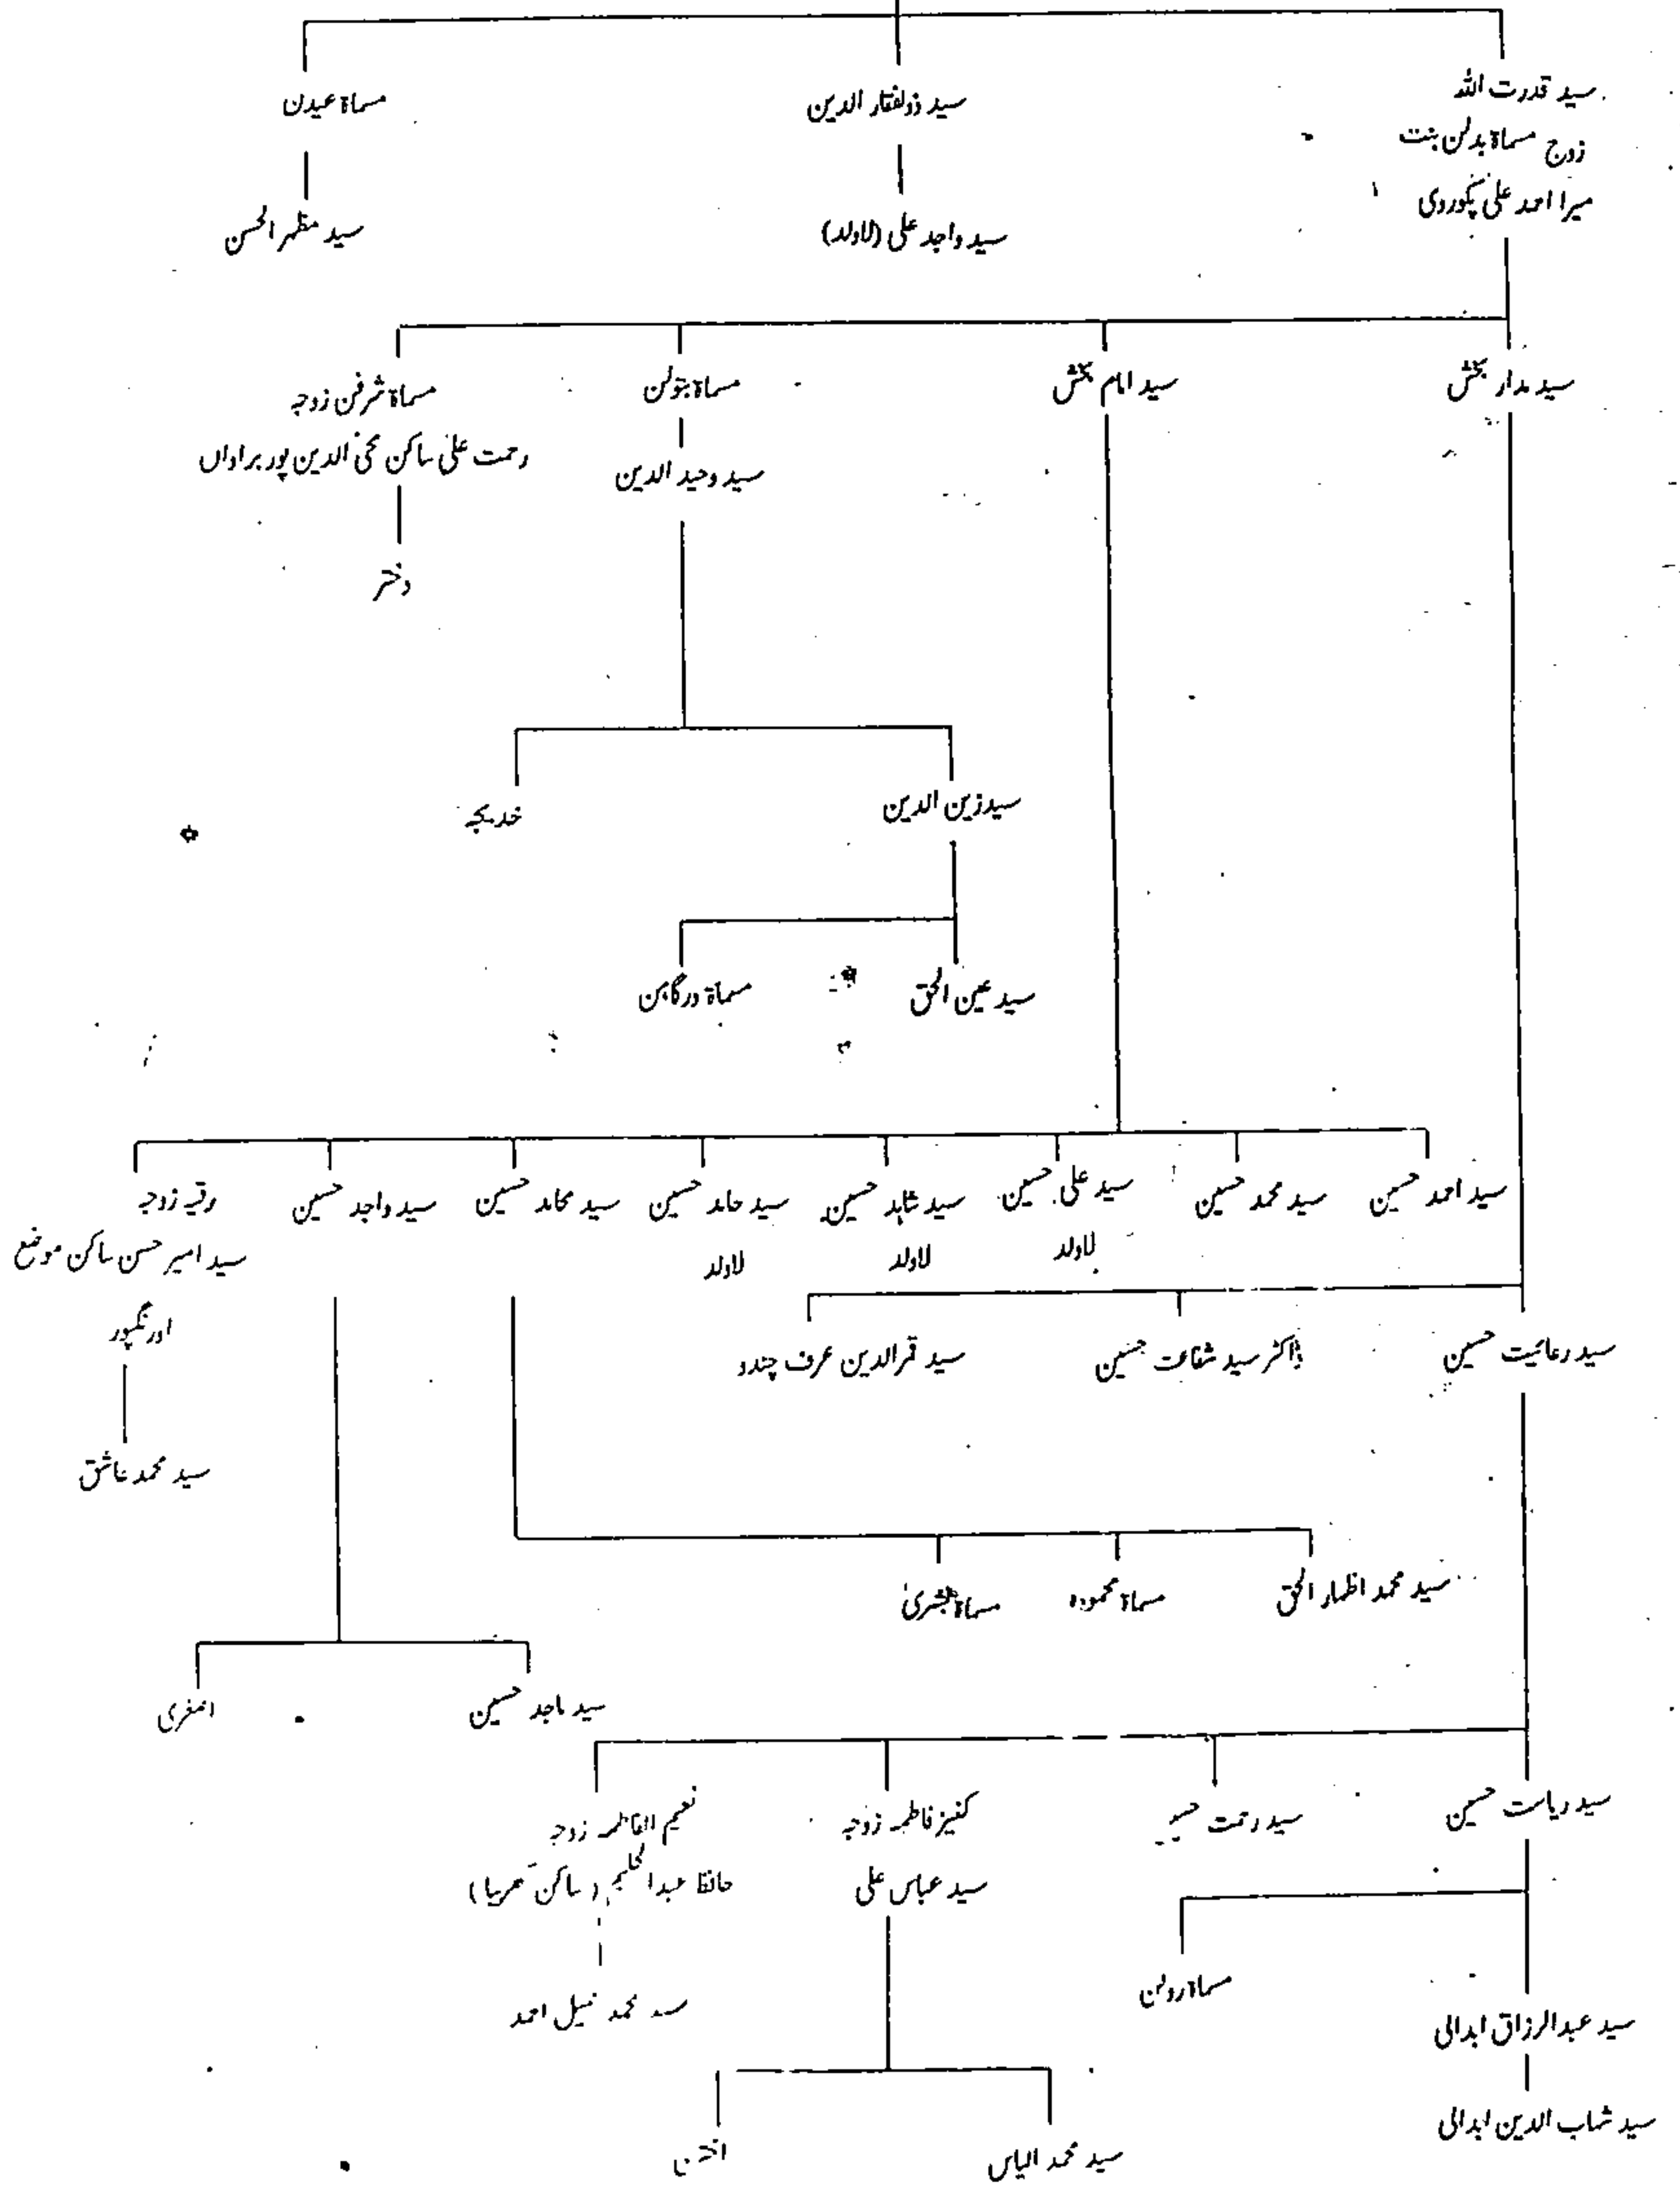 سید قدرت اللہ
زوج مسماۃ بدلن بنت
میرا احمد علی پنکوروی
سید ذولفقار الدین
سید واجد علی (لاولد)
مسماۃ عیدن
سید مظہر الحسن
سید مدار بخش
سید امام بخش
مسماۃ بتولن
سید وحید الدین
مسماۃ شرفن زوجہ
رحمت علی ساکن محی الدین پور براواں
دختر
سید زین الدین
خدیجہ
سید عین الحق
مسماۃ درگاہن
سید احمد حسین
سید محمد حسین
سید علی حسین
لاولد
سید شاہد حسین
لاولد
سید حامد حسین
لاولد
سید محامد حسین
سید واجد حسین
رقیہ زوجہ
سید امیر حسن ساکن موضع
اورنگپور
سید محمد عاشق
سید رعائیت حسین
ڈاکٹر سید شفاعت حسین
سید قمرالدین عرف چندو
سید محمد اظہار الحق
مسماۃ محمودہ
مسماۃ بشریٰ
سید ماجد حسین
اصغری
سید ریاست حسین
سید رحمت حسین
کنیز فاطمہ زوجہ
سید عباس علی
نعیم الفاطمہ زوجہ
حافظ عبدالحلیم (ساکن عمریا)
سید محمد احمد
مسماۃ رولن
سید عبدالرزاق ابدالی
سید شہاب الدین ابدالی
سید محمد الیاس